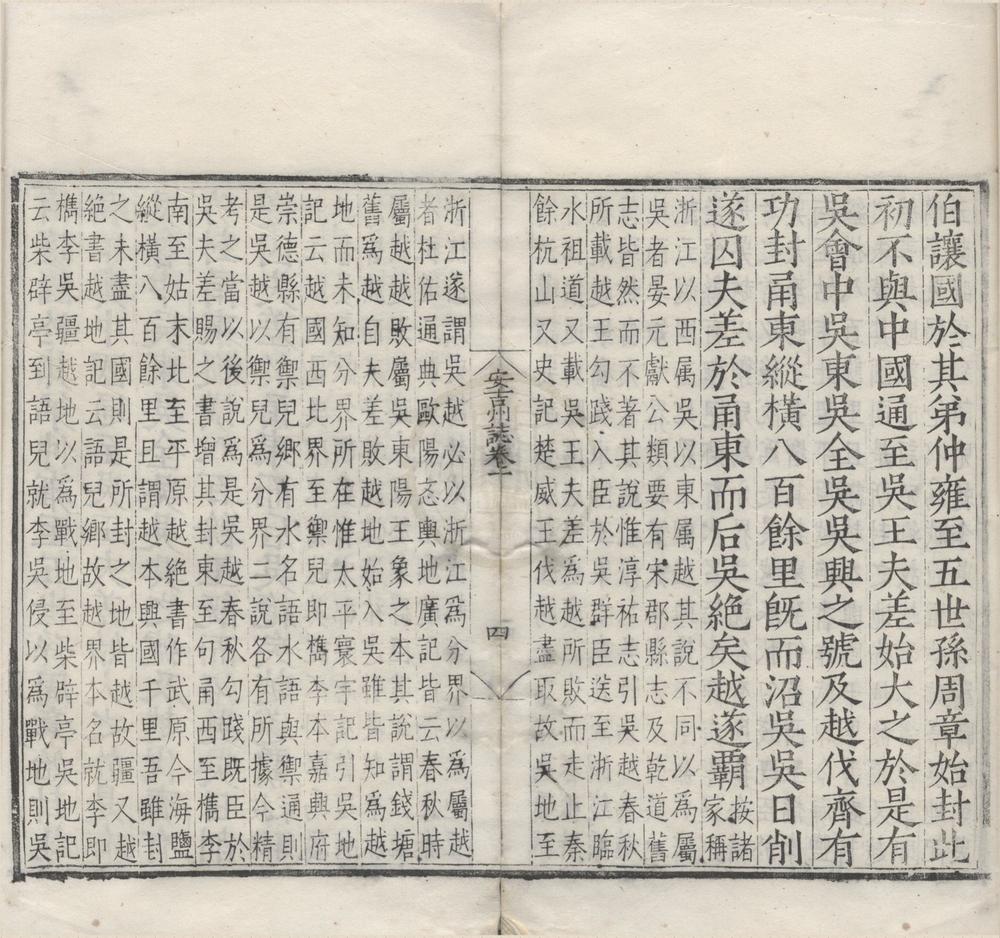 伯讓國於其弟仲雍至五世孫周章始封此
初不與中國通至吳王夫差始大之於是有
吳會中吳東吳全吳吳興之號及越伐齊有
功封甬東縱橫八百餘里既而沼吳吳日削
遂囚夫差於甬東而后吳絶矣越遂霸按諸
家稱
浙江以西属吳以東属越其說不同以為屬
吳者晏元獻公類要有宋郡縣志及乾道舊
志皆然而不著其說惟淳祐志引吳越春秋
所載越王勾踐入臣於吳群臣送至浙江臨
水祖道又載吳王夫差為越所敗而走止秦
餘杭山又史記楚威王伐越盡取故吳地至
安吉州誌卷一
四
浙江遂謂吳越必以浙江為分界以為屬越
者杜佑通典歐陽忞輿地廣記皆云春秋時
屬越越敗屬吳東陽王象之本其說謂錢塘
舊為越自夫差敗越地始入吳雖皆知為越
地而未知分界所在惟太平寰宇記引吳地
記云越國西比界至禦兒即檇李本嘉興府
崇德縣有禦兒鄉有水名語水語與禦通則
是吳越以禦兒為分界二說各有所據今精
考之當以後說為是吳越春秋勾踐既臣於
吳夫差賜之書增其封東至句甬西至檇李
南至姑末比至平原越絶書作武原今海鹽
縱橫八百餘里且謂越本興國千里吾雖封
之未盡其國則是所封之地皆越故疆又越
絶書越地記云語兒鄉故越界本名就李即
檇李吳疆越地以為戰地至柴辟亭吳地記
云柴辟亭到語兒就李吳侵以為戰地則吳